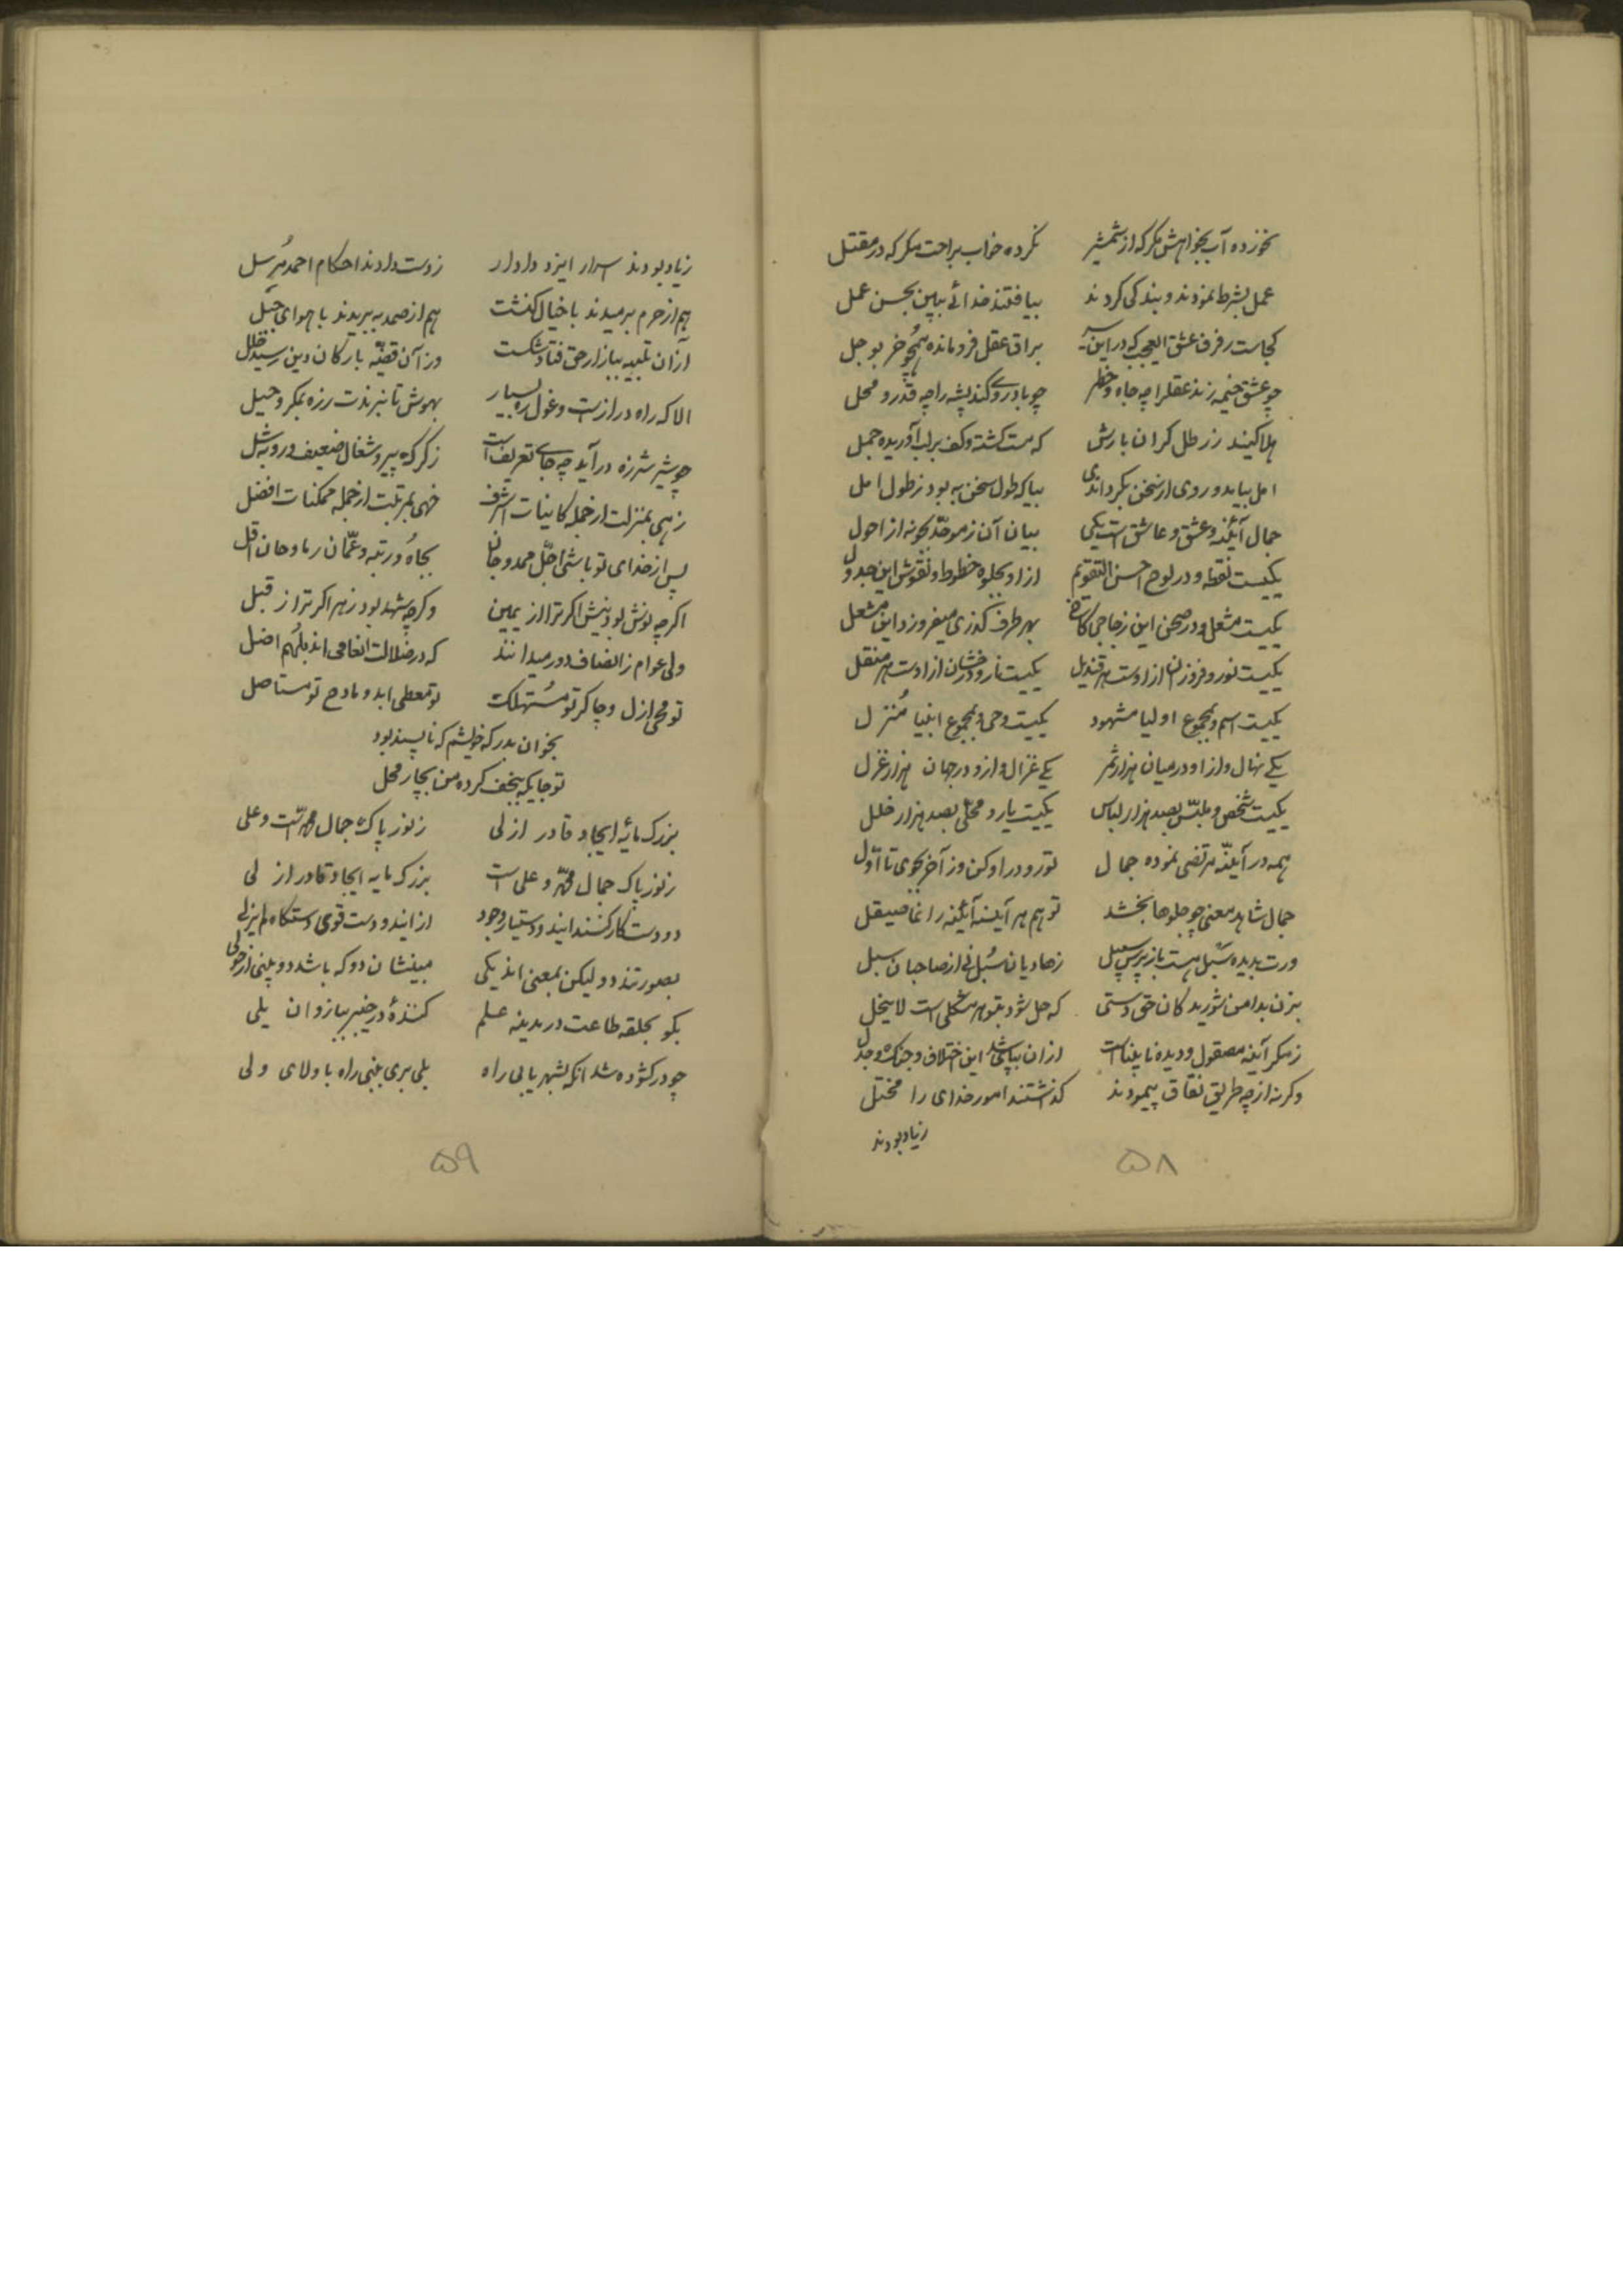 نخورده آب بخواهش مگر که از شمشیر نکرده خواب براحت مکر که در مقتل
عمل بشرط نمودند و بندکی کردند بیافتند خدائے ببین بحسن عمل
کجاست رفرف عشق العجب که در این براق عقل فرو مانده همچو خر بوحل
چو عشق خیمه زند عقلرا چه جاه و خطر چو باد روے کند پشه را چه قدر و محل
هلا کنید ز رطل کران بارش که مست کشته و کف بر لب آوریده جمل
امل بیاید و روی از سخن بکردانی بیا که طول سخن به بود ز طول امل
جمال آینه و عشق و عاشق است یکی بیان آن ز موحد بجو نه از احول
یکیست نقطه و در لوح احسن التقویم ازاو بجلوه خطوط و نقوش این جدول
یکیست مشعل و در صحن این زجاجی کاخ بهر طرف کذری میفروزد این مشعل
یکیست نور و فروزان ازاوست هر قندیل یکیست نار و درخشان ازاوست هر منقل
یکیست اسم و بمجموع اولیا مشهود یکیست وحی و بمجموع انبیا مُنزل
یکے نهال و ازاو در میان هزار ثمر یکے غزال و ازو در جهان هزار غزل
یکیست شخص و ملبّس بصد هزار لباس یکیست یار و محلّی بصد هزار حلل
همه در آینهٔ مرتضی نموده جمال تو رو در او کن و ز آخر بجوی تا اوّل
جمال شاهد معنی چو جلوها بخشد تو هم هر آینه آینه را نما صیقل
ورت بدیده سَبَل هست باز پرس سبیل ز هادیان سُبُل نی از صاحبان سبل
بزن بدامن شوریدکان حق دستی که حل شود بتو هر مشکلی است لا ینحل
زمکر آینه مصقول و دیده نابیناست ازان بپا شد این اختلاف و جنک و جدل
وکرنه از چه طریق نفاق پیمودند کذاشتند امور خدای را مختل
زیاد بودند
۵۸
زیاد بودند اسرار ایزد دادار ز دست دادند احکام احمد مُرسل
هم از حرم برمیدند با خیال کنشت هم از صمد ببریدند با هوای هبل
ازان تعبیه ببازار حق فتاد شکست وز آن قضیّه بارکان دین رسید خلل
الا که راه دراز است و غول ره بسیار بهوش تا نبرندت ز ره بمکر و حیل
چو شیر شرزه درآید چه جاے تعریف است ز کرک پیر و شغال ضعیف و روبه شل
زهی بمنزلت از جمله کاینات اشرف خهی بمرتبت از جمله ممکنات افضل
پس از خدای تو باشی اجلّ ممدوحان بجاه و رتبه و عمّان مادحان اقل
اکر چه نوش بود نیش اکر ترا از یمین وکر چه شهد بود زهر اکر ترا ز قبل
ولی عوام ز انصاف دور میدانند که در ضلالت انعامی اند بلهُم اضل
تو محیی ازل و چاکر تو مُستهلک تو معطی ابد و مادح تو مستاصل
بخوان بدرکه خویشم که ناپسند بود
تو جایکه بنجف کرده من بچار محل
بزرک مایهٔ ایجاد قادر ازلی ز نور پاک جمال محمّد است و علی
ز نور پاک جمال محمّد و علی است بزرک مایه ایجاد قادر ازلی
دو دست کارکنند ایند و دستیار وجود از ایند و دست قوی دستکاه لم یزلی
بصورتند دو لیکن بمعنی اند یکی مبینشان دو که باشد دو بینی از حولی
بکو بحلقه طاعت در مدینه علم کنندهٔ در خیبر ببازوان یلی
چو در کشوده شد آنکه بشهر یابی راه بلی بری بنبی راه با ولای ولی
۵۹